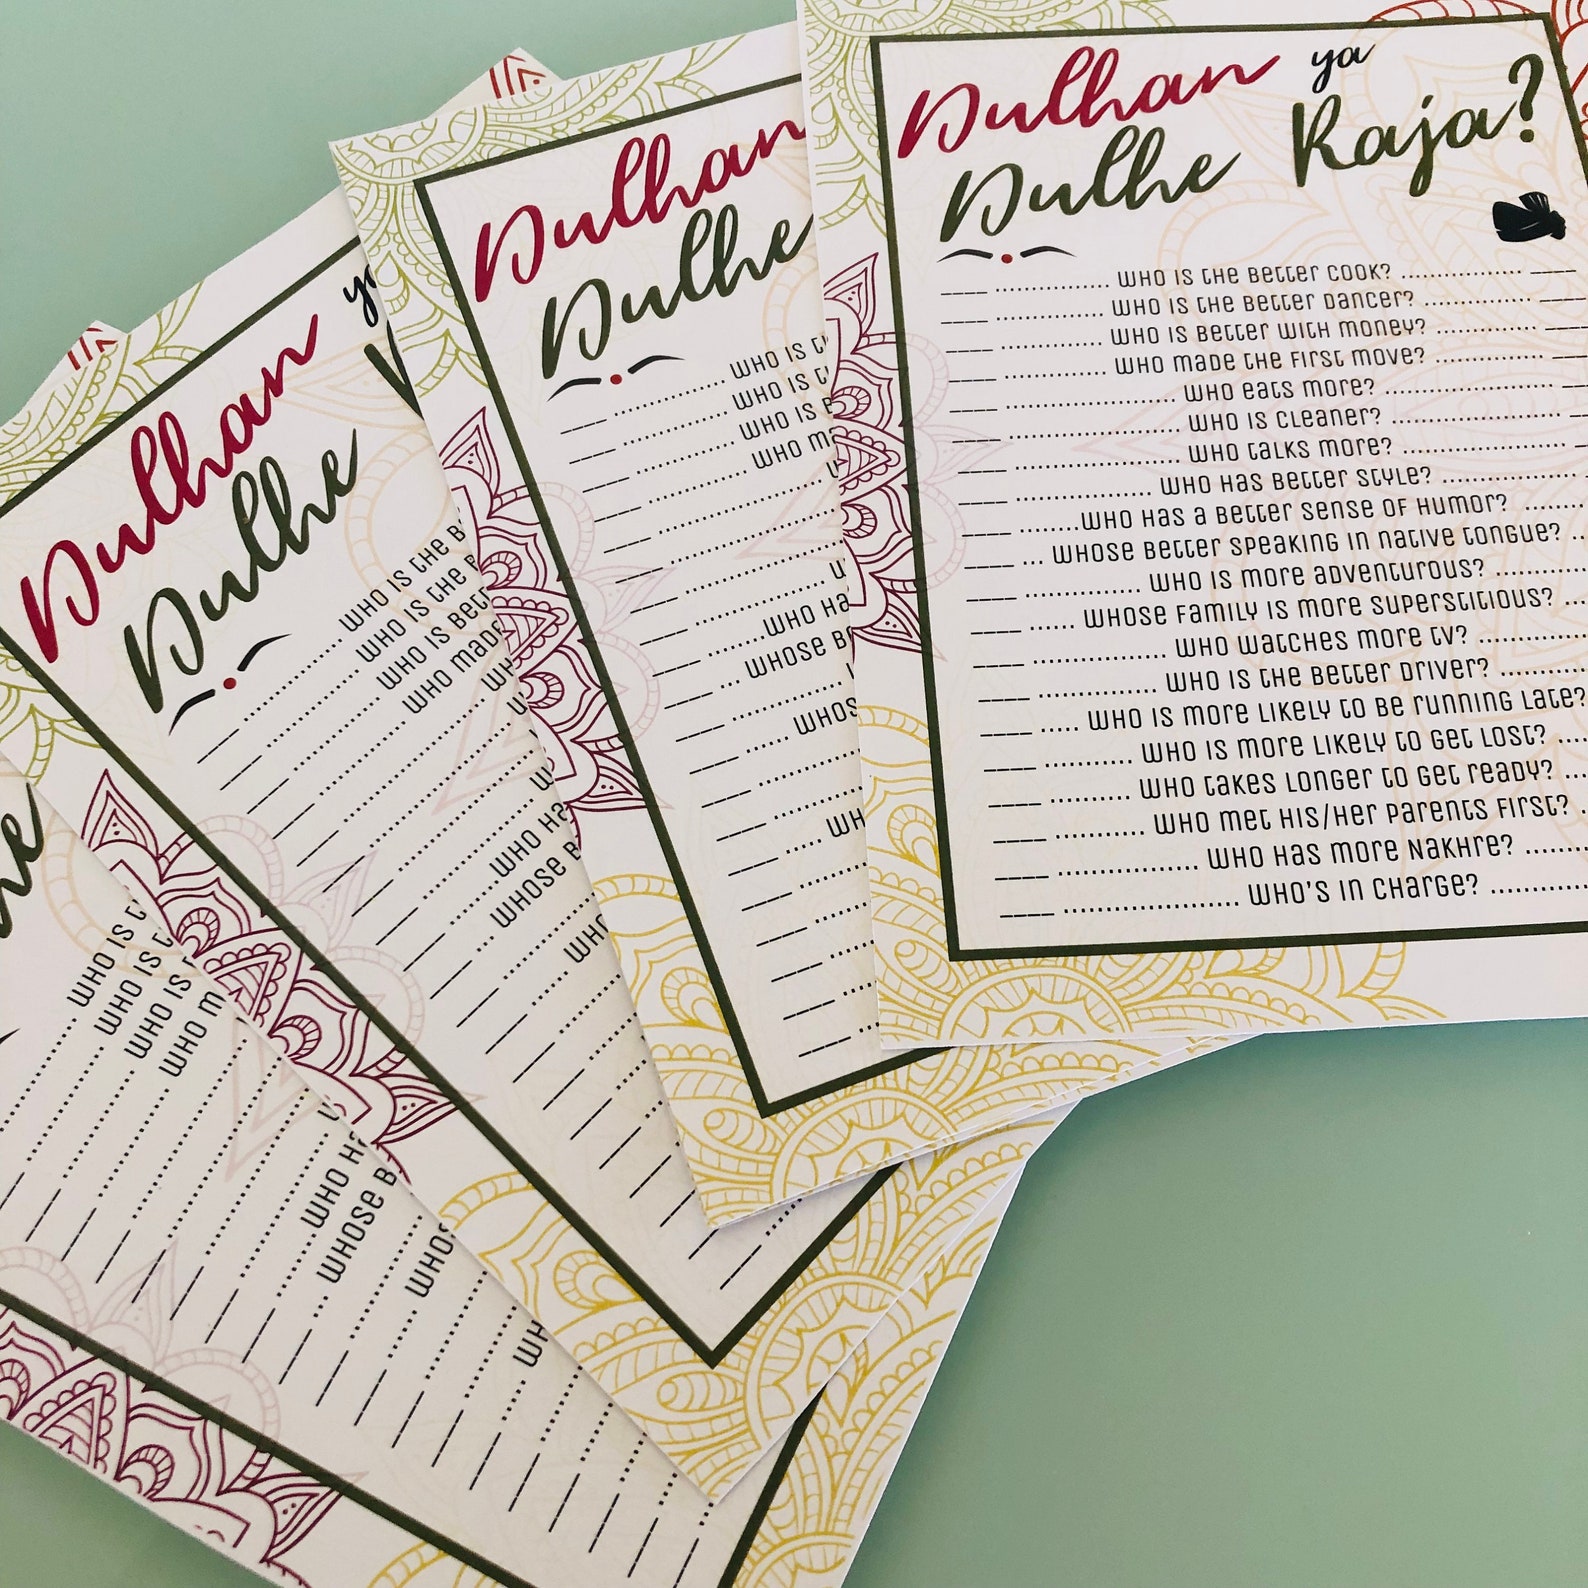 Dulhan ya
Dulhe Raja?
____ ................ WHO IS THE BETTER COOK? ................. ____
____ ............... WHO IS THE BETTER DANCER? ............... ____
____ ............... WHO IS BETTER WITH MONEY? .............. ____
____ ............... WHO MADE THE FIRST MOVE? ............... ____
____ ....................... WHO EATS MORE? ........................ ____
____ ........................ WHO IS CLEANER? ........................ ____
____ ........................ WHO TALKS MORE? ......................
____ ................... WHO HAS BETTER STYLE? .................
____ .........WHO HAS A BETTER SENSE OF HUMOR? .........
____ ... WHOSE BETTER SPEAKING IN NATIVE TONGUE? ..
____ ................. WHO IS MORE ADVENTUROUS? .............
____ ...... WHOSE FAMILY IS MORE SUPERSTITIOUS? ...
____ ................... WHO WATCHES MORE TV? ...............
____ ................ WHO IS THE BETTER DRIVER? .............
____ ..... WHO IS MORE LIKELY TO BE RUNNING LATE?
____ ............ WHO IS MORE LIKELY TO GET LOST? ....
____ ........... WHO TAKES LONGER TO GET READY? ...
____ ............ WHO MET HIS/HER PARENTS FIRST? .
____ .................. WHO HAS MORE NAKHRE? .........
____ ..................... WHO'S IN CHARGE? .............
Dulhan
Dulhe
____ ................ WHO IS
____ ............... WHO IS
____ ............... WHO IS
____ ............... WHO
____ .........WHO HA
____ ... WHOSE B
____ ...... WHOS
WH
Dulhan ya
Dulhe
____ ................ WHO IS THE B
____ ............... WHO IS THE
____ ............... WHO IS BETT
____ ............... WHO MADE
WH
____ .........WHO HA
____ ... WHOSE B
WHO
WHO IS
WHO IS
WHO IS
WHO M
WHO HA
WHOSE B
WHOS
WH